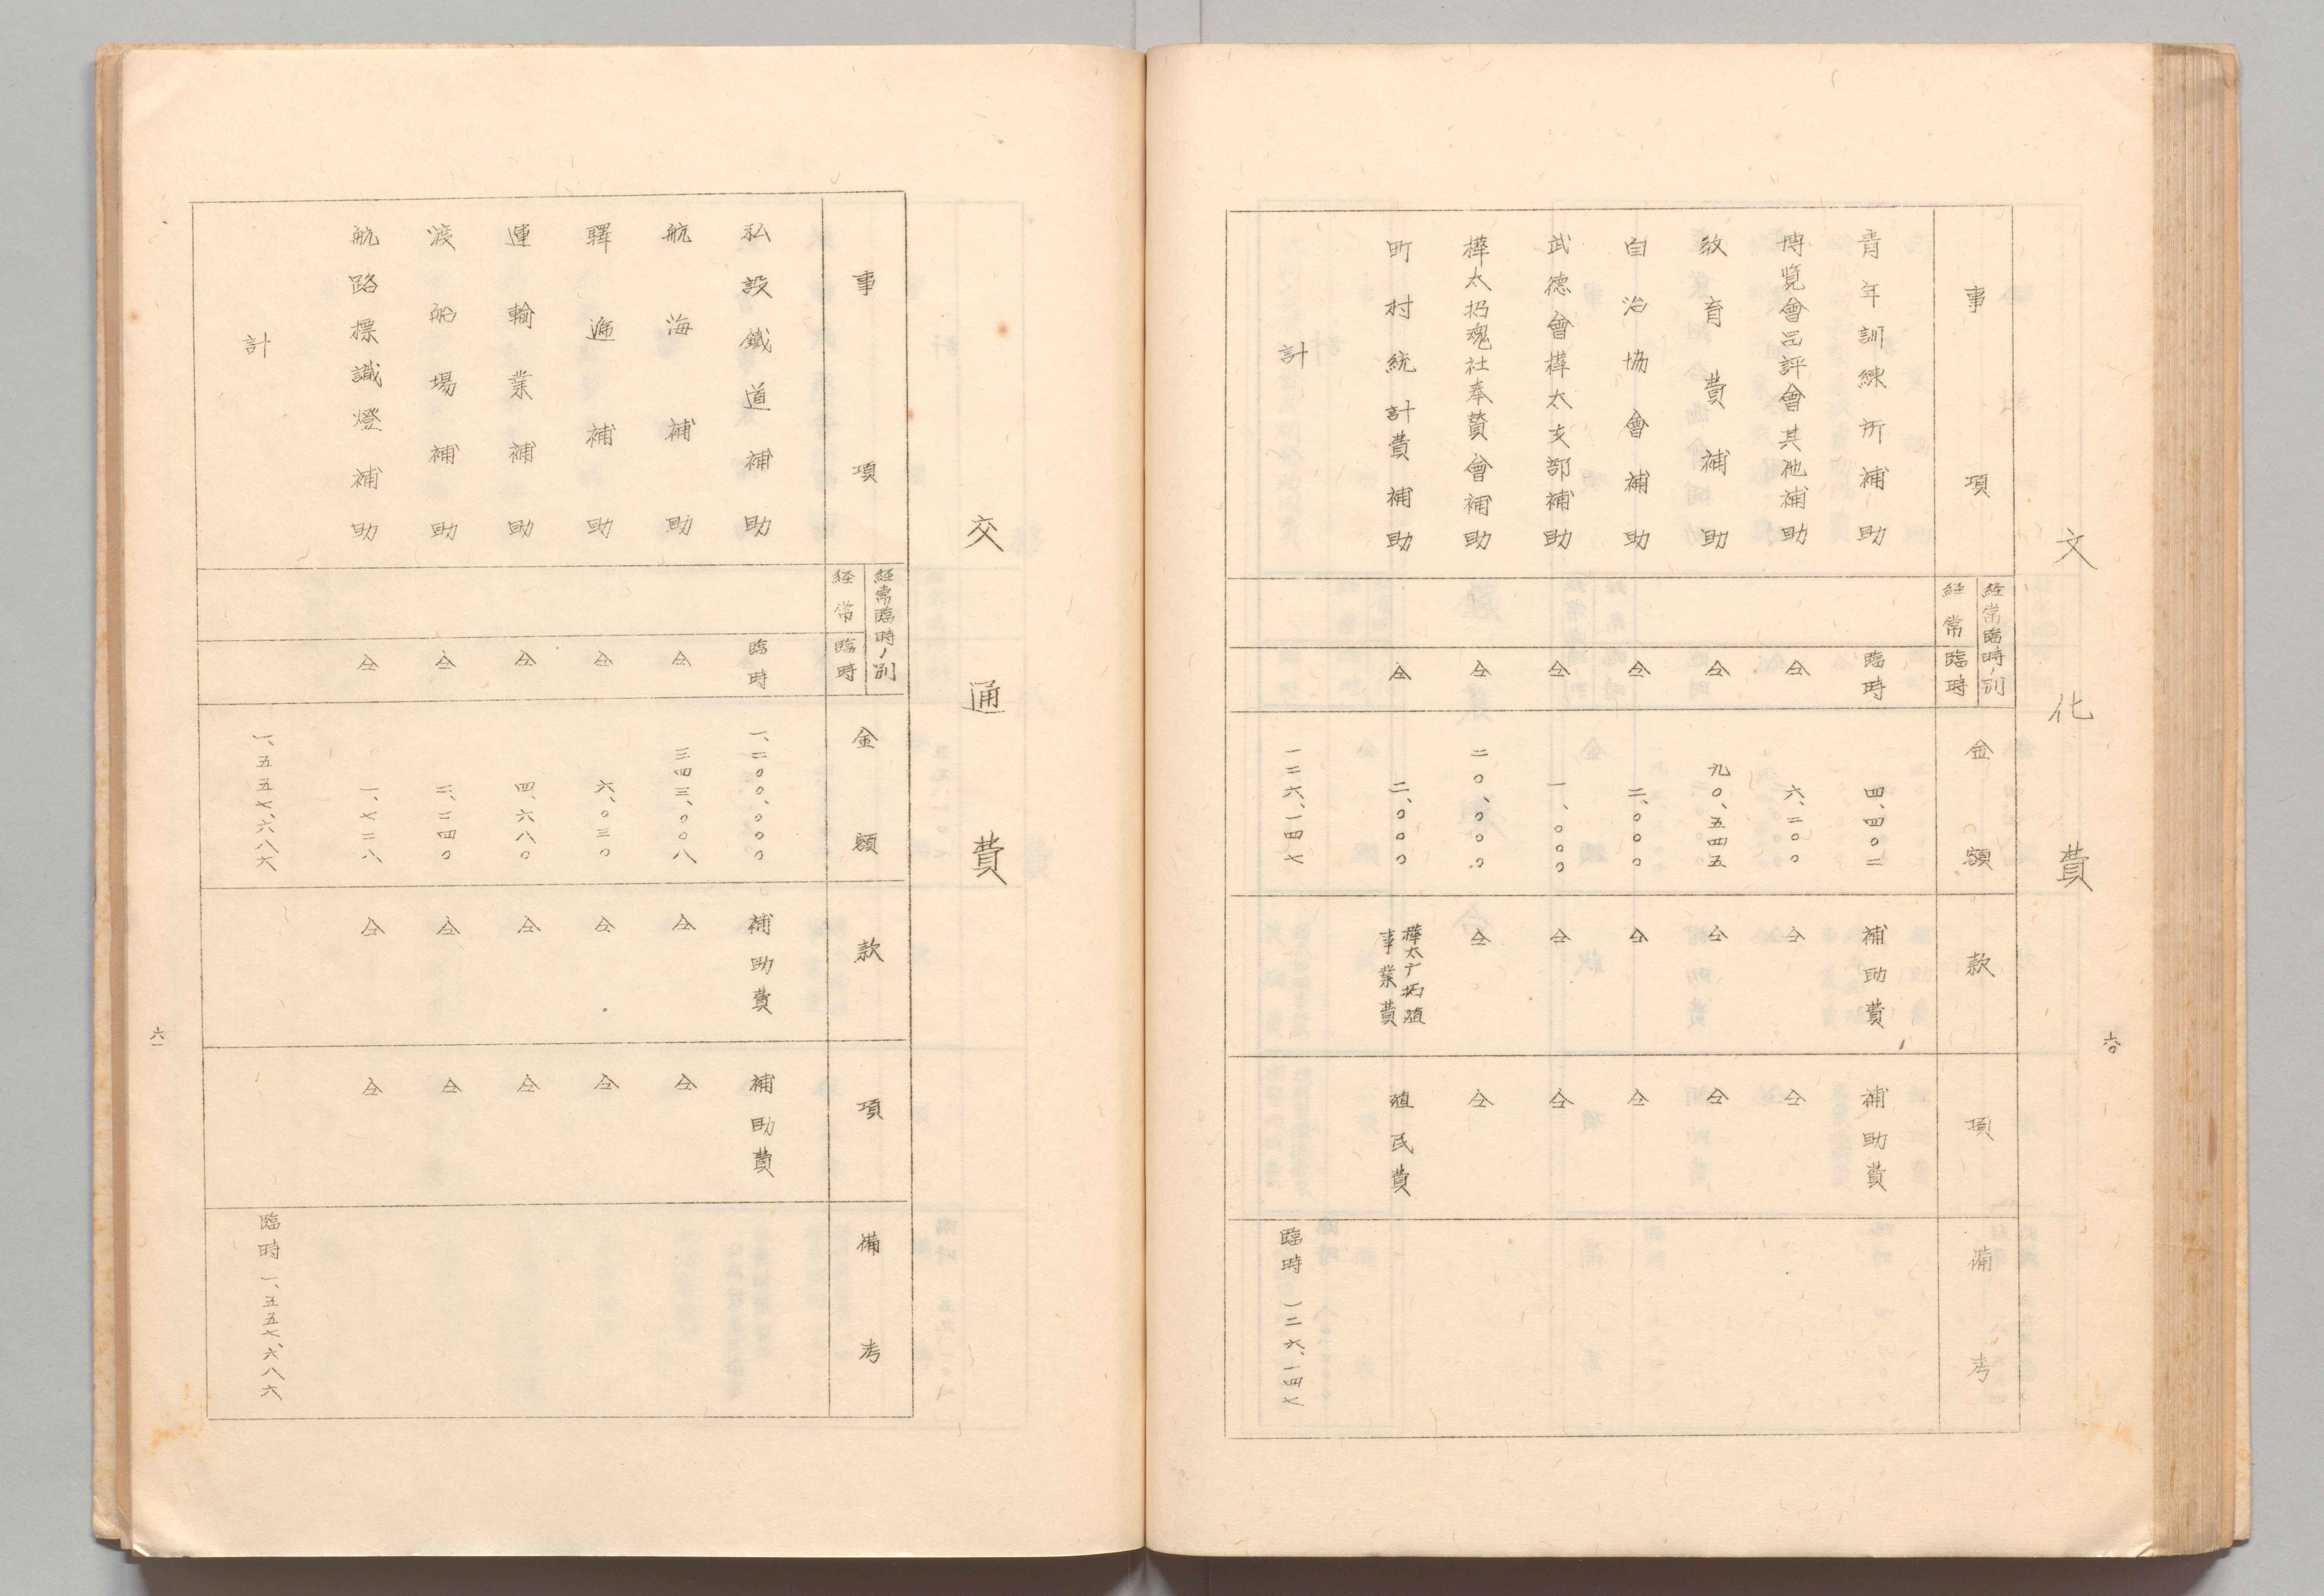 文化費
六〇
事項
経常臨時ノ別
経常
臨時
金額
款
項
備考
青年訓練所補助
臨時
四、四〇二
補助費
補助費
博覧會品評會其他補助
仝
六、二〇〇
仝
仝
教育費補助
仝
九〇、五四五
仝
仝
自治協會補助
仝
二、〇〇〇
仝
仝
武徳會樺太支部補助
仝
一、〇〇〇
仝
仝
樺太招魂社奉賛會補助
仝
二〇、〇〇〇
仝
仝
町村統計費補助
仝
二、〇〇〇
樺太庁拓殖
事業費
殖民費
計
一二六、一四七
臨時 一二六、一四七
交通費
事項
経常臨時ノ別
経常
臨時
金額
款
項
備考
私設鐵道補助
臨時
一、二〇〇、〇〇〇
補助費
補助費
航海補助
仝
三四三、〇〇八
仝
仝
驛逓補助
仝
六、〇三〇
仝
仝
運輸業補助
仝
四、六八〇
仝
仝
渡船場補助
仝
二、二四〇
仝
仝
航路標識燈補助
仝
一、七二八
仝
仝
計
一、五五七、六八六
臨時 一、五五七、六八六
六一